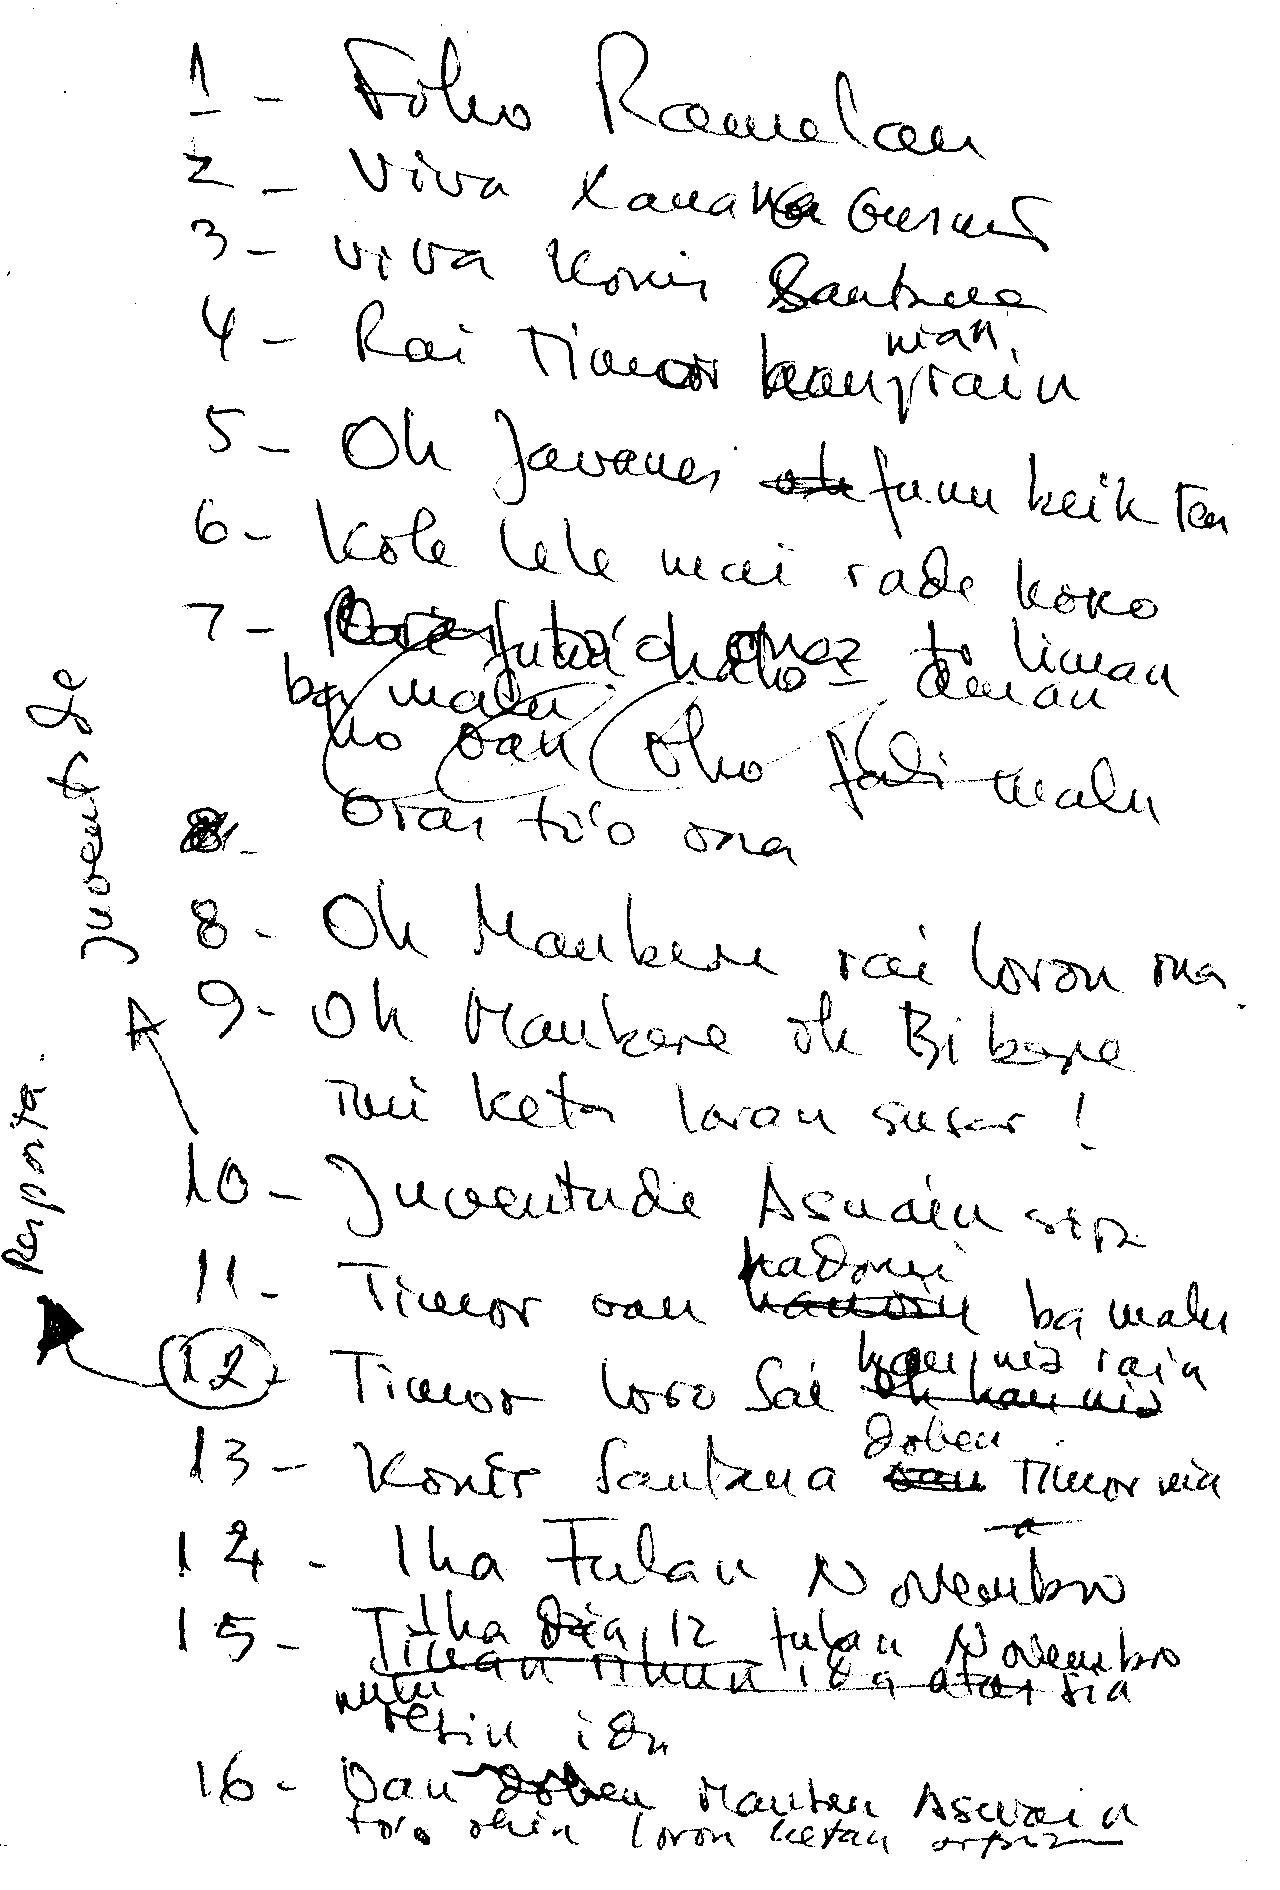 1 - Foho Ramelau
2 - Viva Xanana Gusmão
3 - Viva Konis Santana
4 - Rai Timor hau nian rain
5 - Oh Javanes oh funu keik ten
6 - Kole lele mai rade koko
7 - futu to liman
ba malu aman
no oan oho fali malu
oras to'o ona
8 -
8 - Oh Maubere rai loron ona.
9 - Oh Maubere oh Bibere
imi keta laran susar!
10 - Juventude Asuain sira
11 - Timor oan hadomi ba malu
12 - Timor loro Sai hau nia rain
oh hau nia
13 - Konis Santana doben Timor nia
oan
14 - Iha Fulan Novembro
15 - Iha dia 12 fulan Novembro
Tinan rihun ida atus sia
nulu
resin ida
16 - Oan doben Mauber Asuain
to'o ohin loron
Juventude
Resposta.